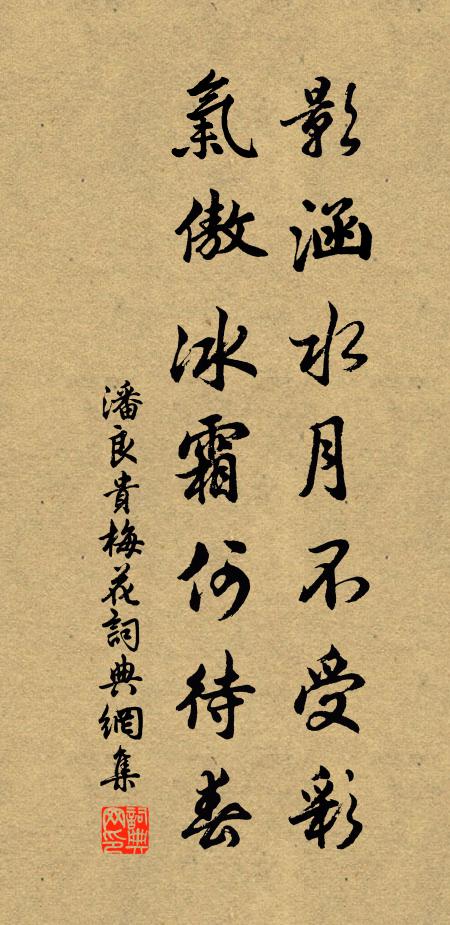 影涵水月不受彩
氣傲冰霜何待春
潘良貴梅花詞典網集
詞典网印